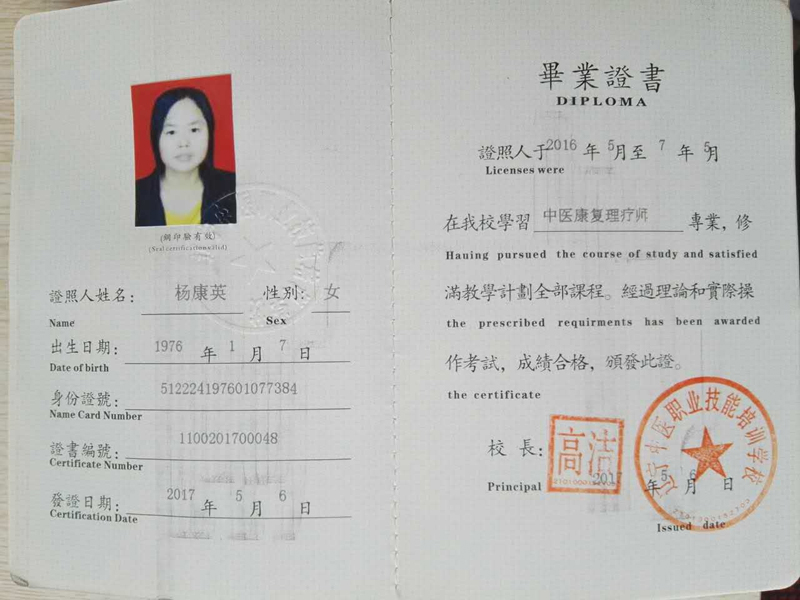 (鋼印驗有效)
(Seal certification valid)
證照人姓名: 杨康英 性别: 女
Name Sex
出生日期: 1976 年 1 月 7 日
Date of birth
身份證號: 512224197601077384
Name Card Number
證書編號: 1100201700048
Certificate Number
發證日期: 2017 年 5 月 6 日
Certification Date
畢業證書
DIPLOMA
證照人于2016 年 5月至 7 年 5月
Licenses were
在我校學習 中医康复理疗师 專業,修
Hauing pursued the course of study and satisfied
滿教學計劃全部課程。經過理論和實際操
the prescribed requirments has been awarded
作考試,成績合格,頒發此證。
the certificate
校長: 高洁
Principal 2017 年 5 月 6 日
Issued date
辽宁中医职业技能培训学校